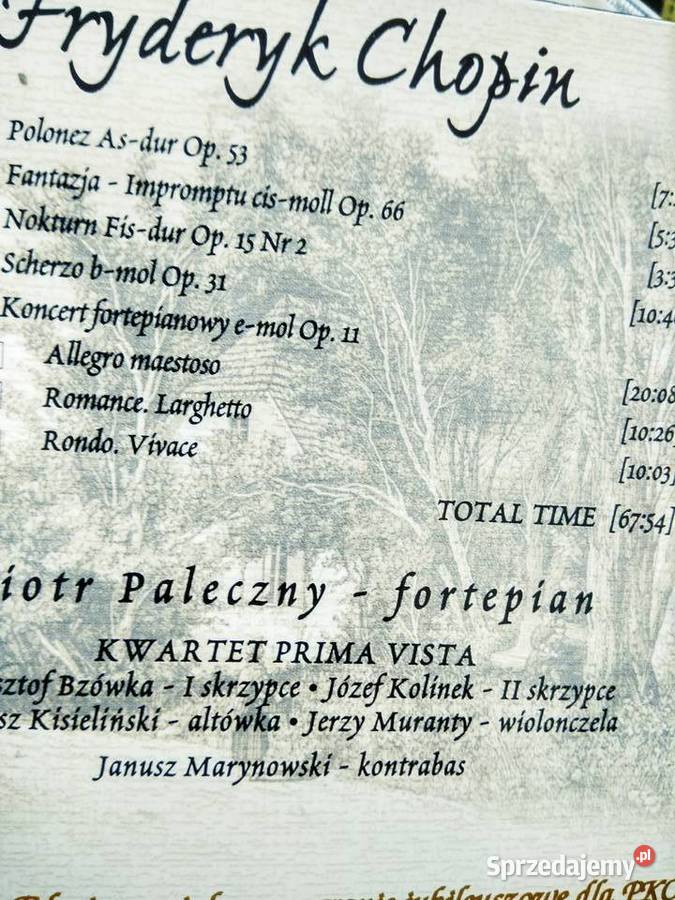 Fryderyk Chopin
Polonez As-dur Op. 53
Fantazja - Impromptu cis-moll Op. 66 [7:
Nokturn Fis-dur Op. 15 Nr 2 [5:3
Scherzo b-mol Op. 31 [3:3
Koncert fortepianowy e-mol Op. 11 [10:4
Allegro maestoso
Romance. Larghetto [20:08
Rondo. Vivace [10:26]
[10:03]
TOTAL TIME [67:54]
iotr Paleczny - fortepian
KWARTET PRIMA VISTA
sztof Bzówka - I skrzypce • Józef Kolinek - II skrzypce
sz Kisieliński - altówka • Jerzy Muranty - wiolonczela
Janusz Marynowski - kontrabas
jubileuszowe dla PKO
Sprzedajemy.pl